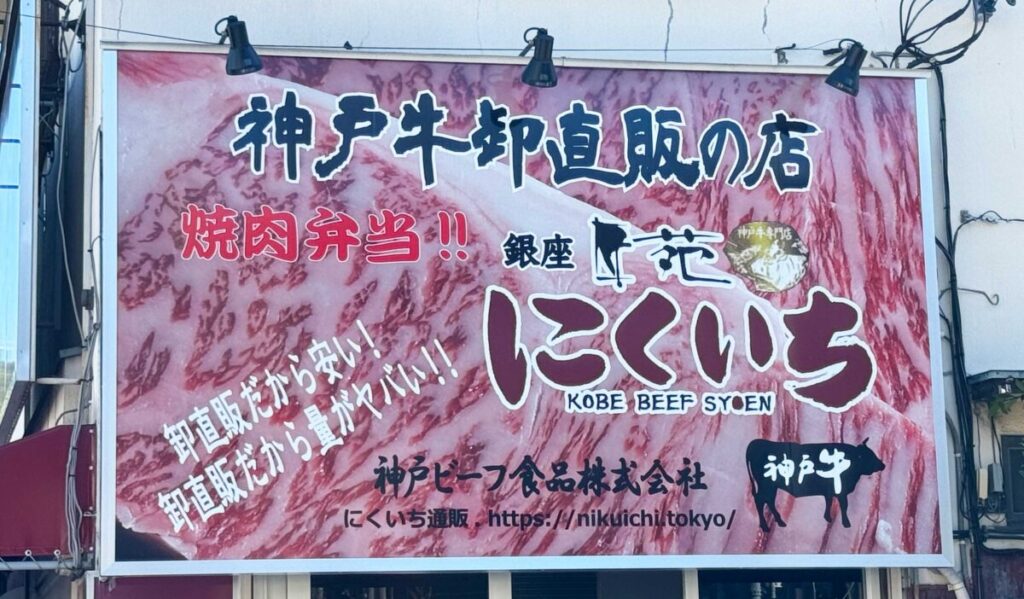 神戸牛卸直販の店
焼肉弁当!!
銀座 苑
神戸牛専門店
にくいち
KOBE BEEF SYOEN
卸直販だから安い!
卸直販だから量がヤバい!!
神戸ビーフ食品株式会社
神戸牛
にくいち通販.https://nikuichi.tokyo/